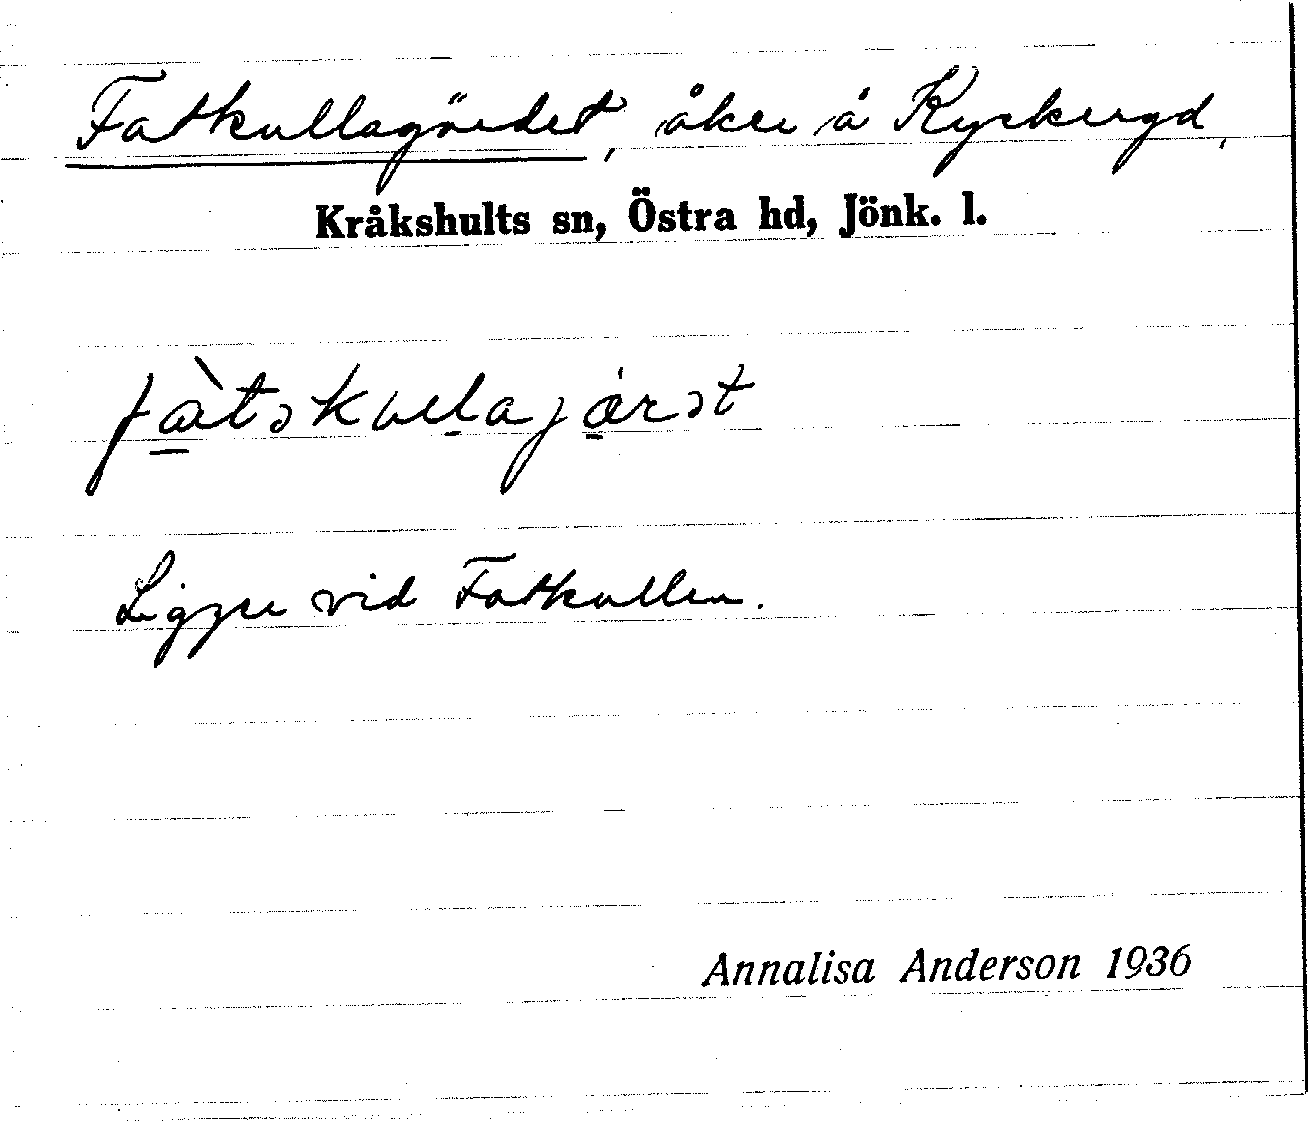 Fatkullagärdet, åker å Kyckeryd,
Kråkshults sn, Östra hd, Jönk. l.
Ligger vid Fatkullen.
Annalisa Anderson 1936